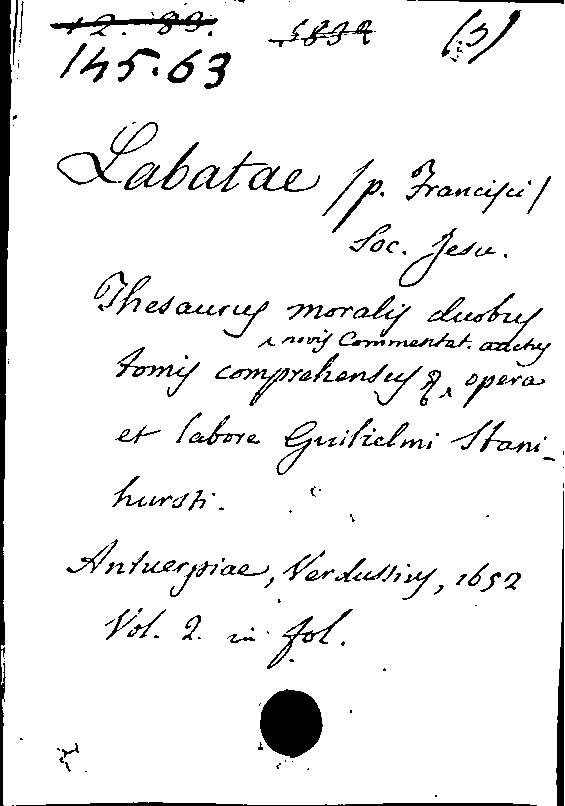 12. 89.
5832
(3)
145.63
Labatae /p. Francisci/
Soc. Jesu.
Thesaurus moralis duobus
novis Commentat. auctus
tomis comprehensus & opera
et labore Guilielmi Stani-
hursti.
Antuerpiae, Verdussius, 1652
Vol. 2. in fol.